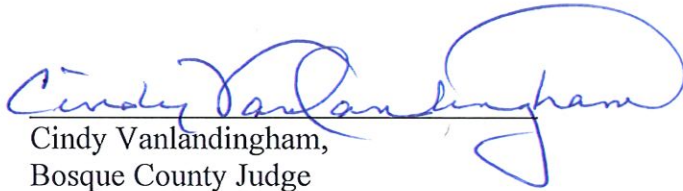 Cindy Vanlandingham
Cindy Vanlandingham,
Bosque County Judge